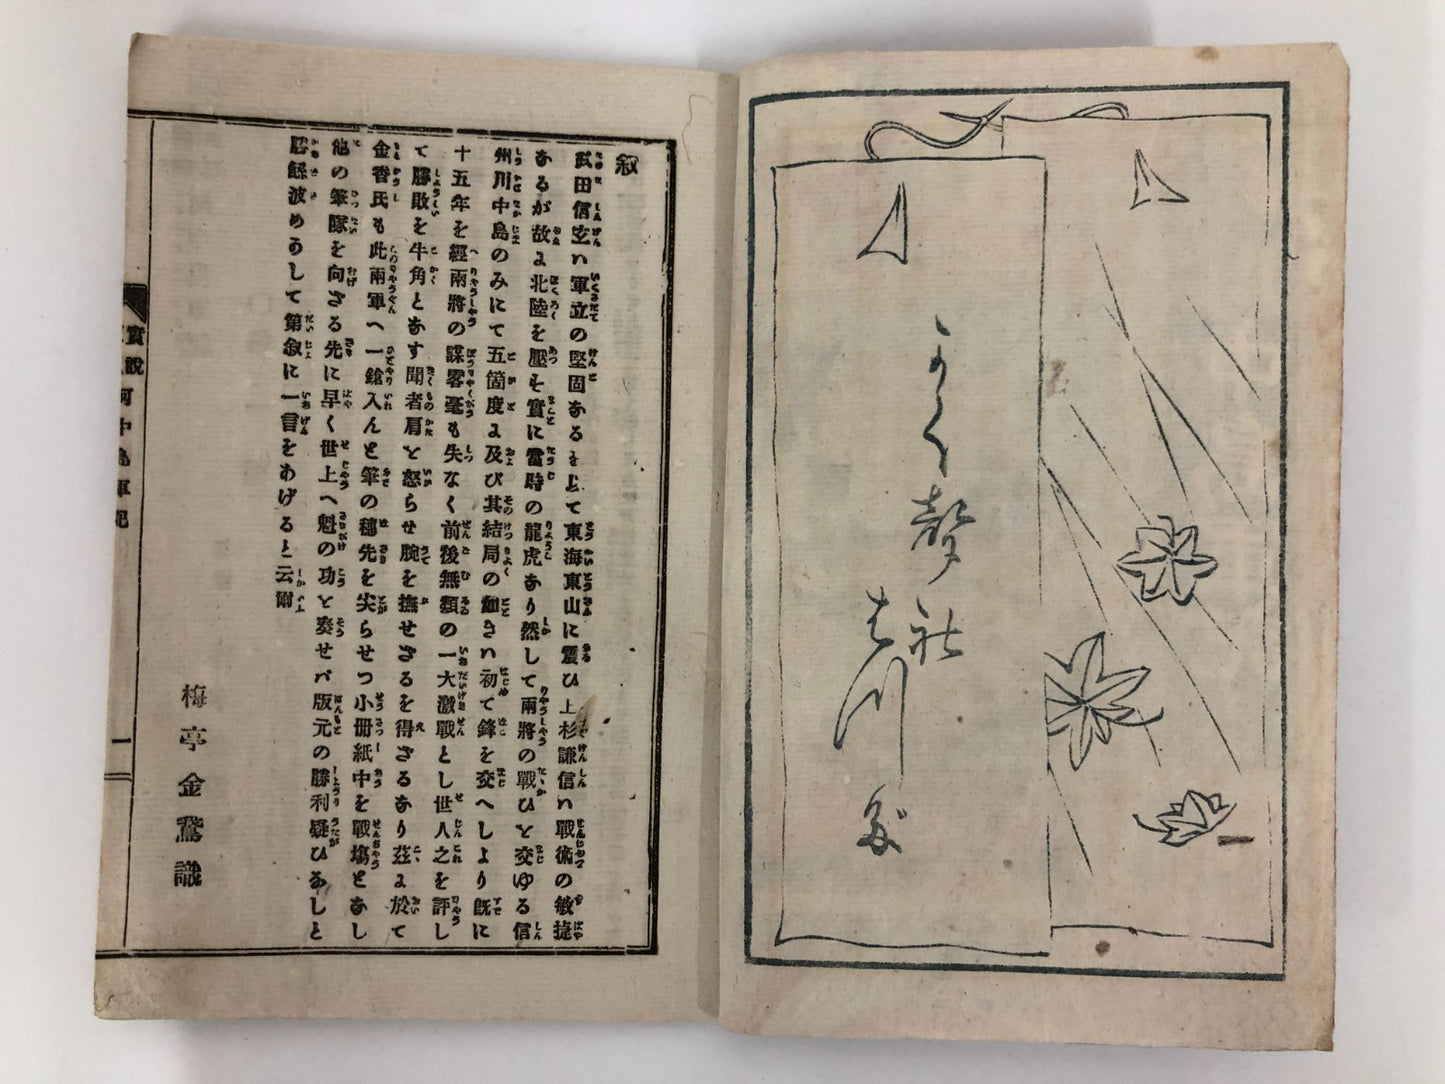 叙
武田信玄ハ軍立の堅固なるをもて東海東山に震ひ上杉謙信ハ戰術の敏捷
なるが故に北陸を壓す實に當時の龍虎なり然して兩將の戰ひを交ゆる信
州川中島のみにて五箇度に及び其結局の如きハ初て鋒を交へしより既に
十五年を經兩將の謀畧毫も失なく前後無類の一大激戰とし世人之を評し
て勝敗を牛角となす聞者肩を怒らせ腕を撫せざるを得ざるなり茲に於て
金香氏も此兩軍へ一鎗入んと筆の穗先を尖らせつ小册紙中を戰塲となし
他の筆隊を向ざる先に早く世上へ魁の功を奏せバ版元の勝利疑ひなしと
勝餘波めかして第叙に一言をあげると云爾
梅亭金鵞識
實説
河中島軍記
一